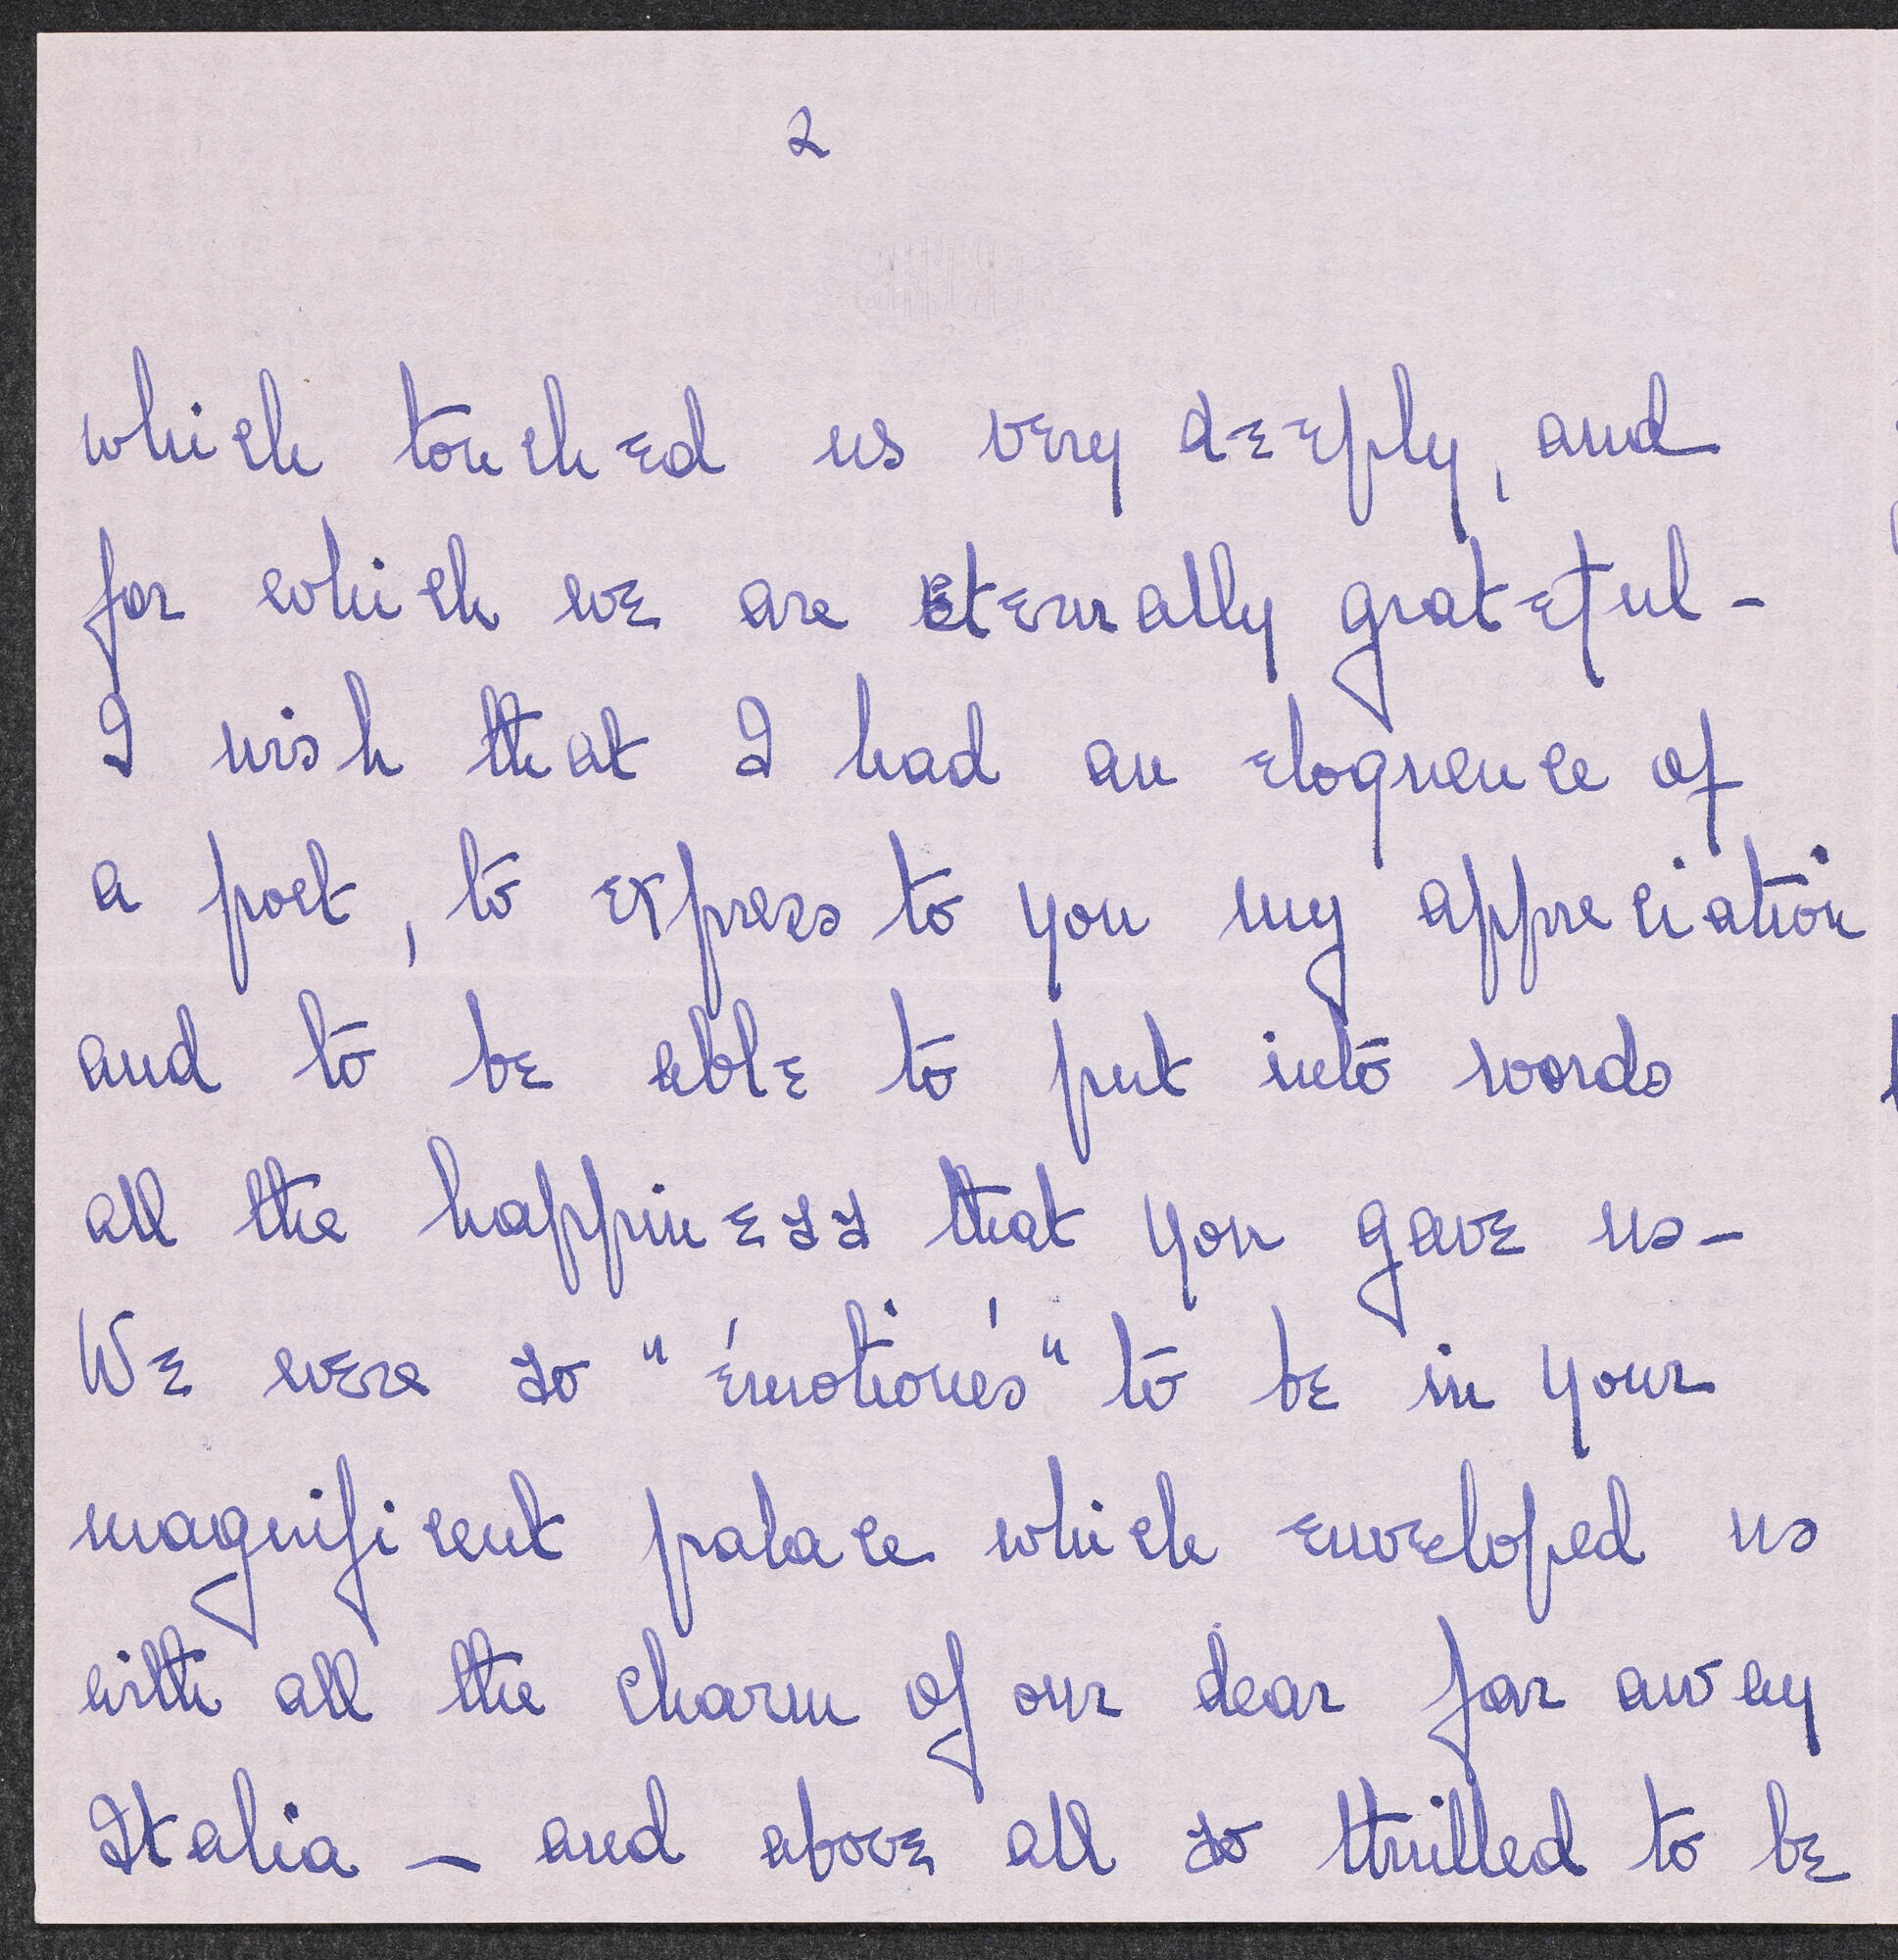 2
which touched us very deeply, and
for which we are eternally grateful -
I wish that I had an eloquence of
a poet, to express to you my appreciation
and to be able to put into words
all the happiness that you gave us -
We were so "émotionés" to be in your
magnificent palace which enveloped us
with all the charm of our dear far away
Italia - and above all so thrilled to be